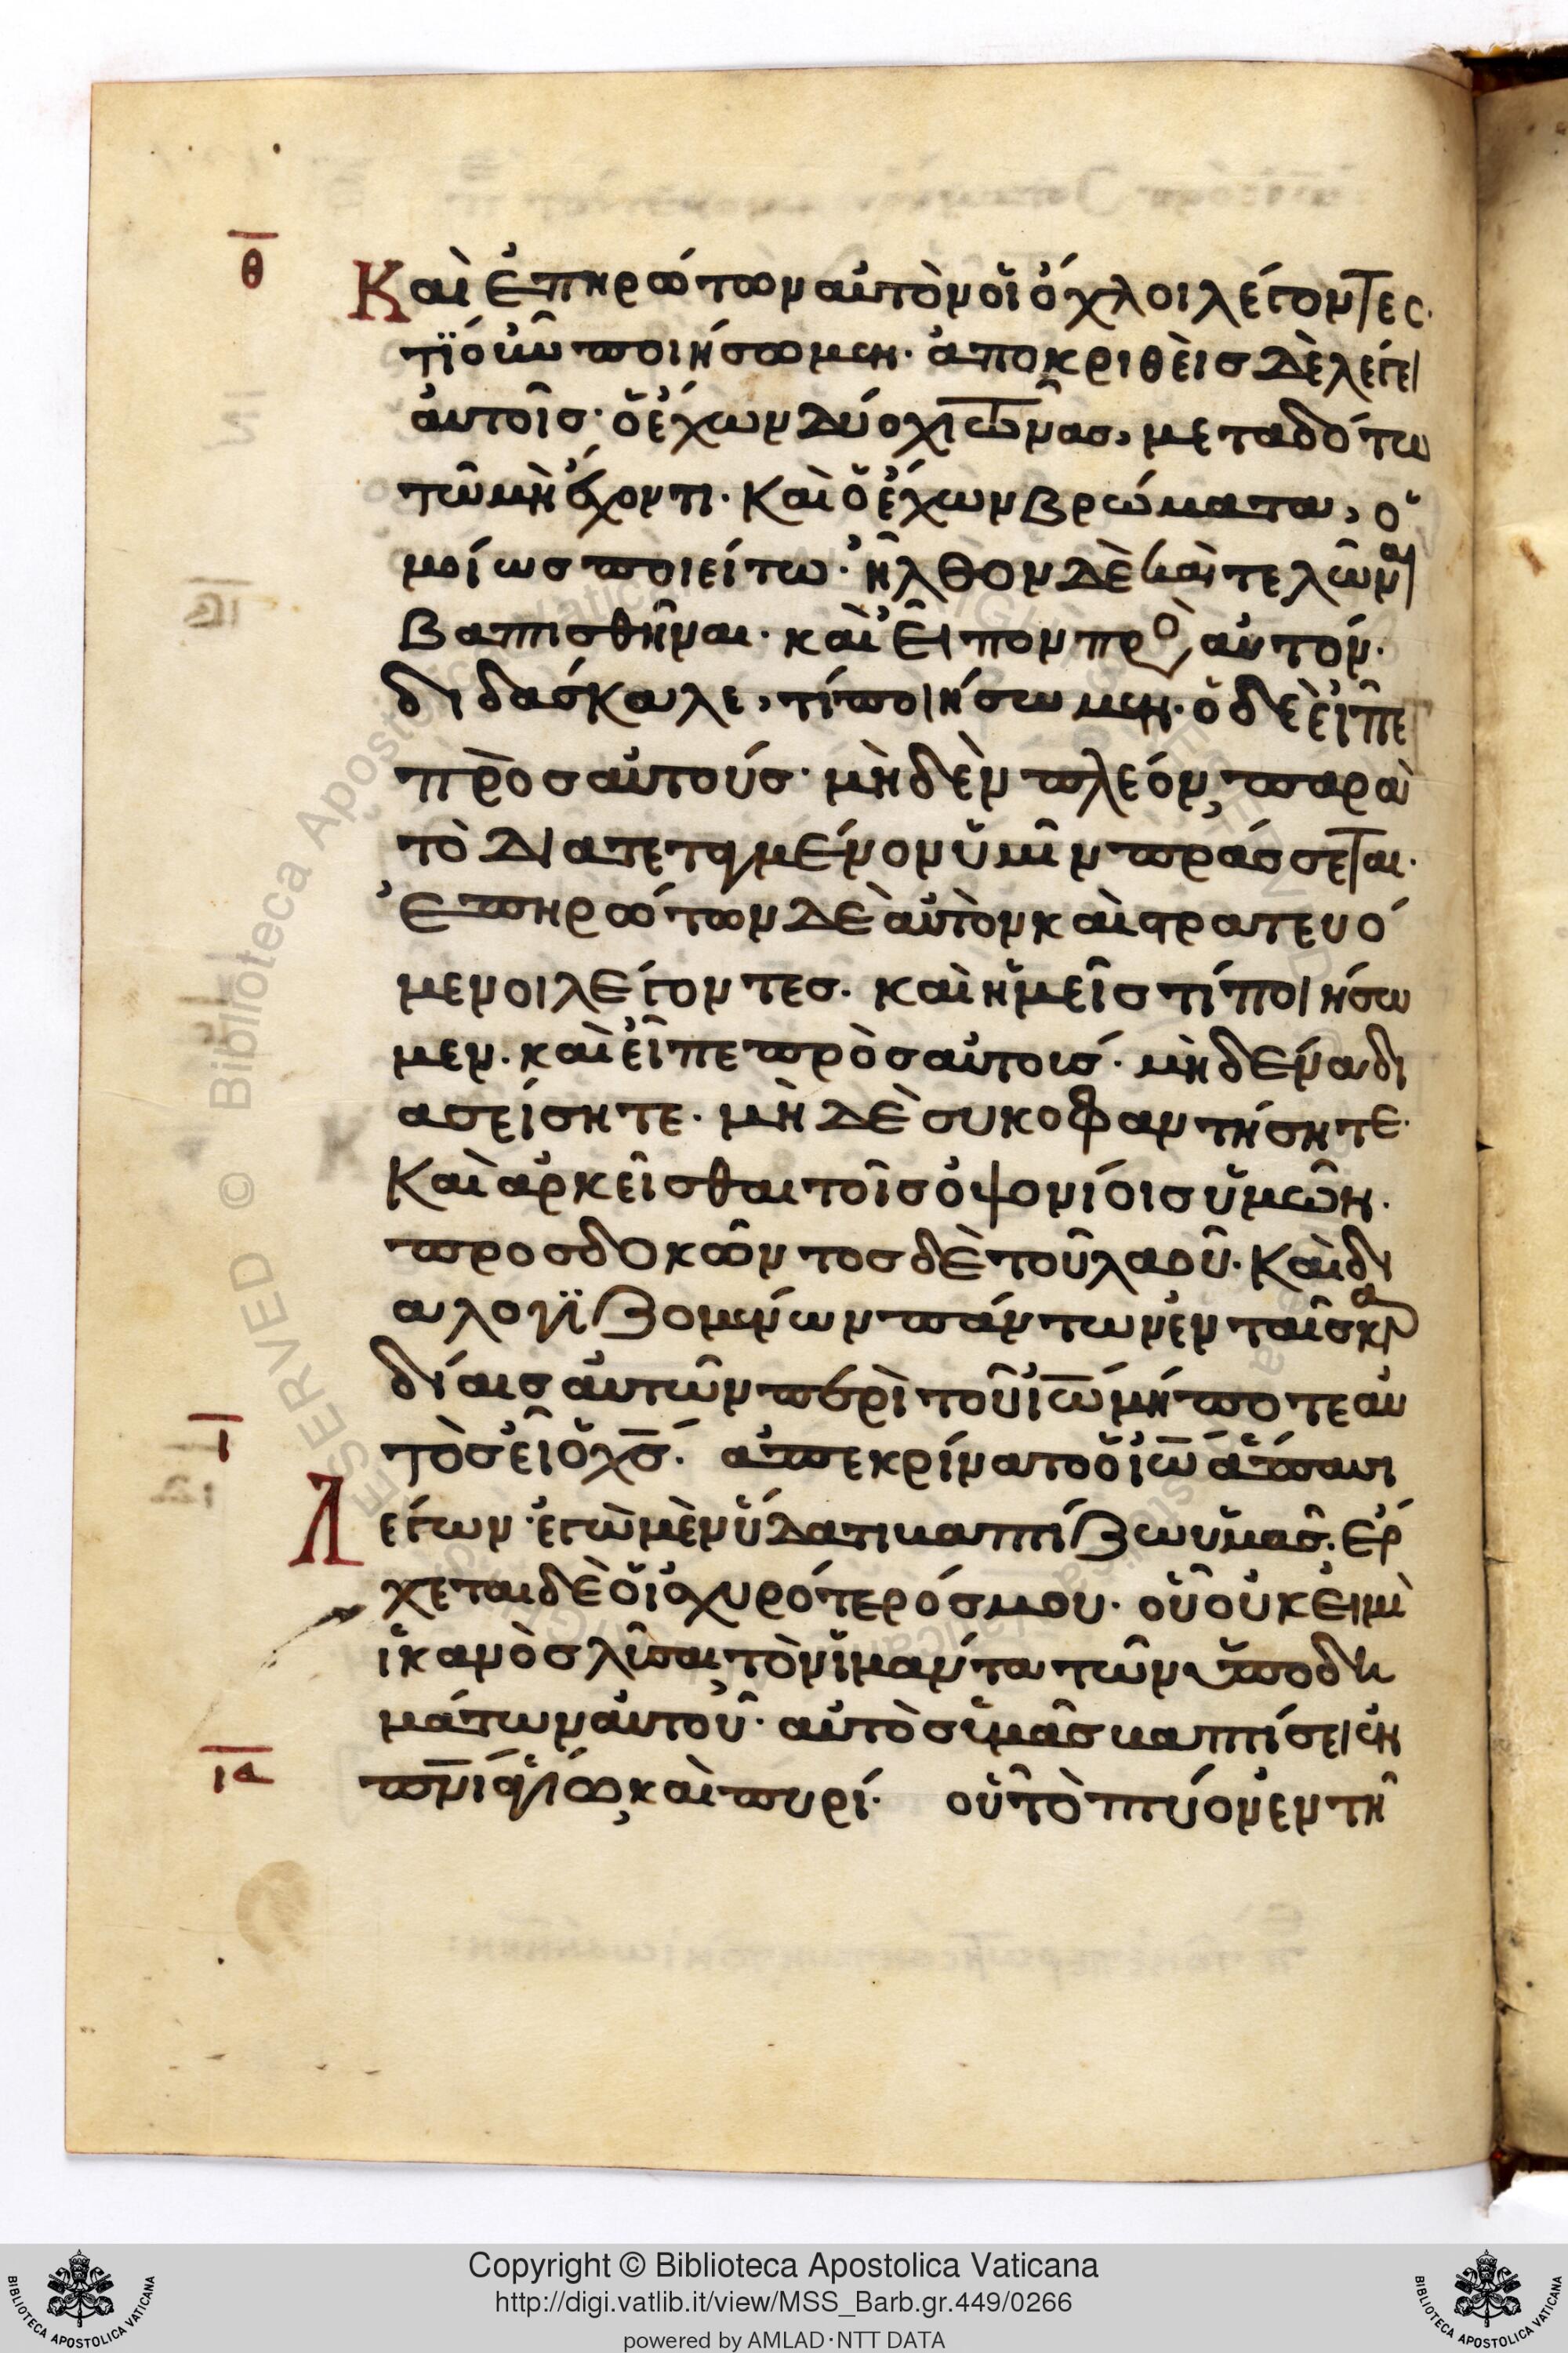 θ
Καὶ ἐπηρώτων αὐτὸν οἱ ὄχλοι λέγοντες·
τί οὖν ποιήσωμεν· ἀποκριθεὶς δὲ λέγει
αὐτοῖς· ὁ ἔχων δύο χιτῶνας, μεταδότω
τῶ μὴ ἔχοντι· καὶ ὁ ἔχων βρώματα, ὁ
μοίως ποιείτω· ἦλθον δὲ καὶ τελῶν
βαπτισθῆναι· καὶ εἶπον πρὸ αὐτόν·
διδάσκαλε, τί ποιήσωμεν· ὁ δὲ εἶπε
πρὸς αὐτούς· μηδὲν πλέον, παρὰ
τὸ διατεταγμένον ὑμῖν πράσσεται·
ἐπηρώτων δὲ αὐτὸν καὶ στρατευό
μενοι λέγοντες· καὶ ἡμεῖς τί ποιήσω
μεν· καὶ εἶπε πρὸς αὐτοις· μηδένα δι
ασείσητε· μὴ δὲ συκοφαντήσητε·
Καὶ ἀρκεῖσθαι τοῖς ὀψονίοις ὑμῶν·
προσδοκῶντος δὲ τοῦ λαοῦ· Καὶ δι
αλογϊζομένων πάντων ἐν ταῖς καρ
δίαις αὐτῶν περὶ τοῦ ἰω̅ μήποτε αὐ
ι
τὸς εἶ ὁ χς̅· ἀπεκρίνατο ὁ ἰω̅ ἅπασι
Λεγων· ἐγὼ μὲν ὕδατι βαπτίζω ὑμᾶς· ἔρ
χεται δὲ ὁ ἰσχυρότερός μου· οὗ οὐκ εἰμὶ
ἱκανὸς λῦσαι τὸν ἱμάντα τῶν ὑποδη
μάτων αὐτοῦ· αὐτὸς ὑμᾶς βαπτίσει ἐν
ια
πν̅ι ἁγίω, καὶ πυρί· οὗ τὸ πτύον ἐν τῆ
Copyright © Biblioteca Apostolica Vaticana
http://digi.vatlib.it/view/MSS_Barb.gr.449/0266
powered by AMLAD·NTT DATA